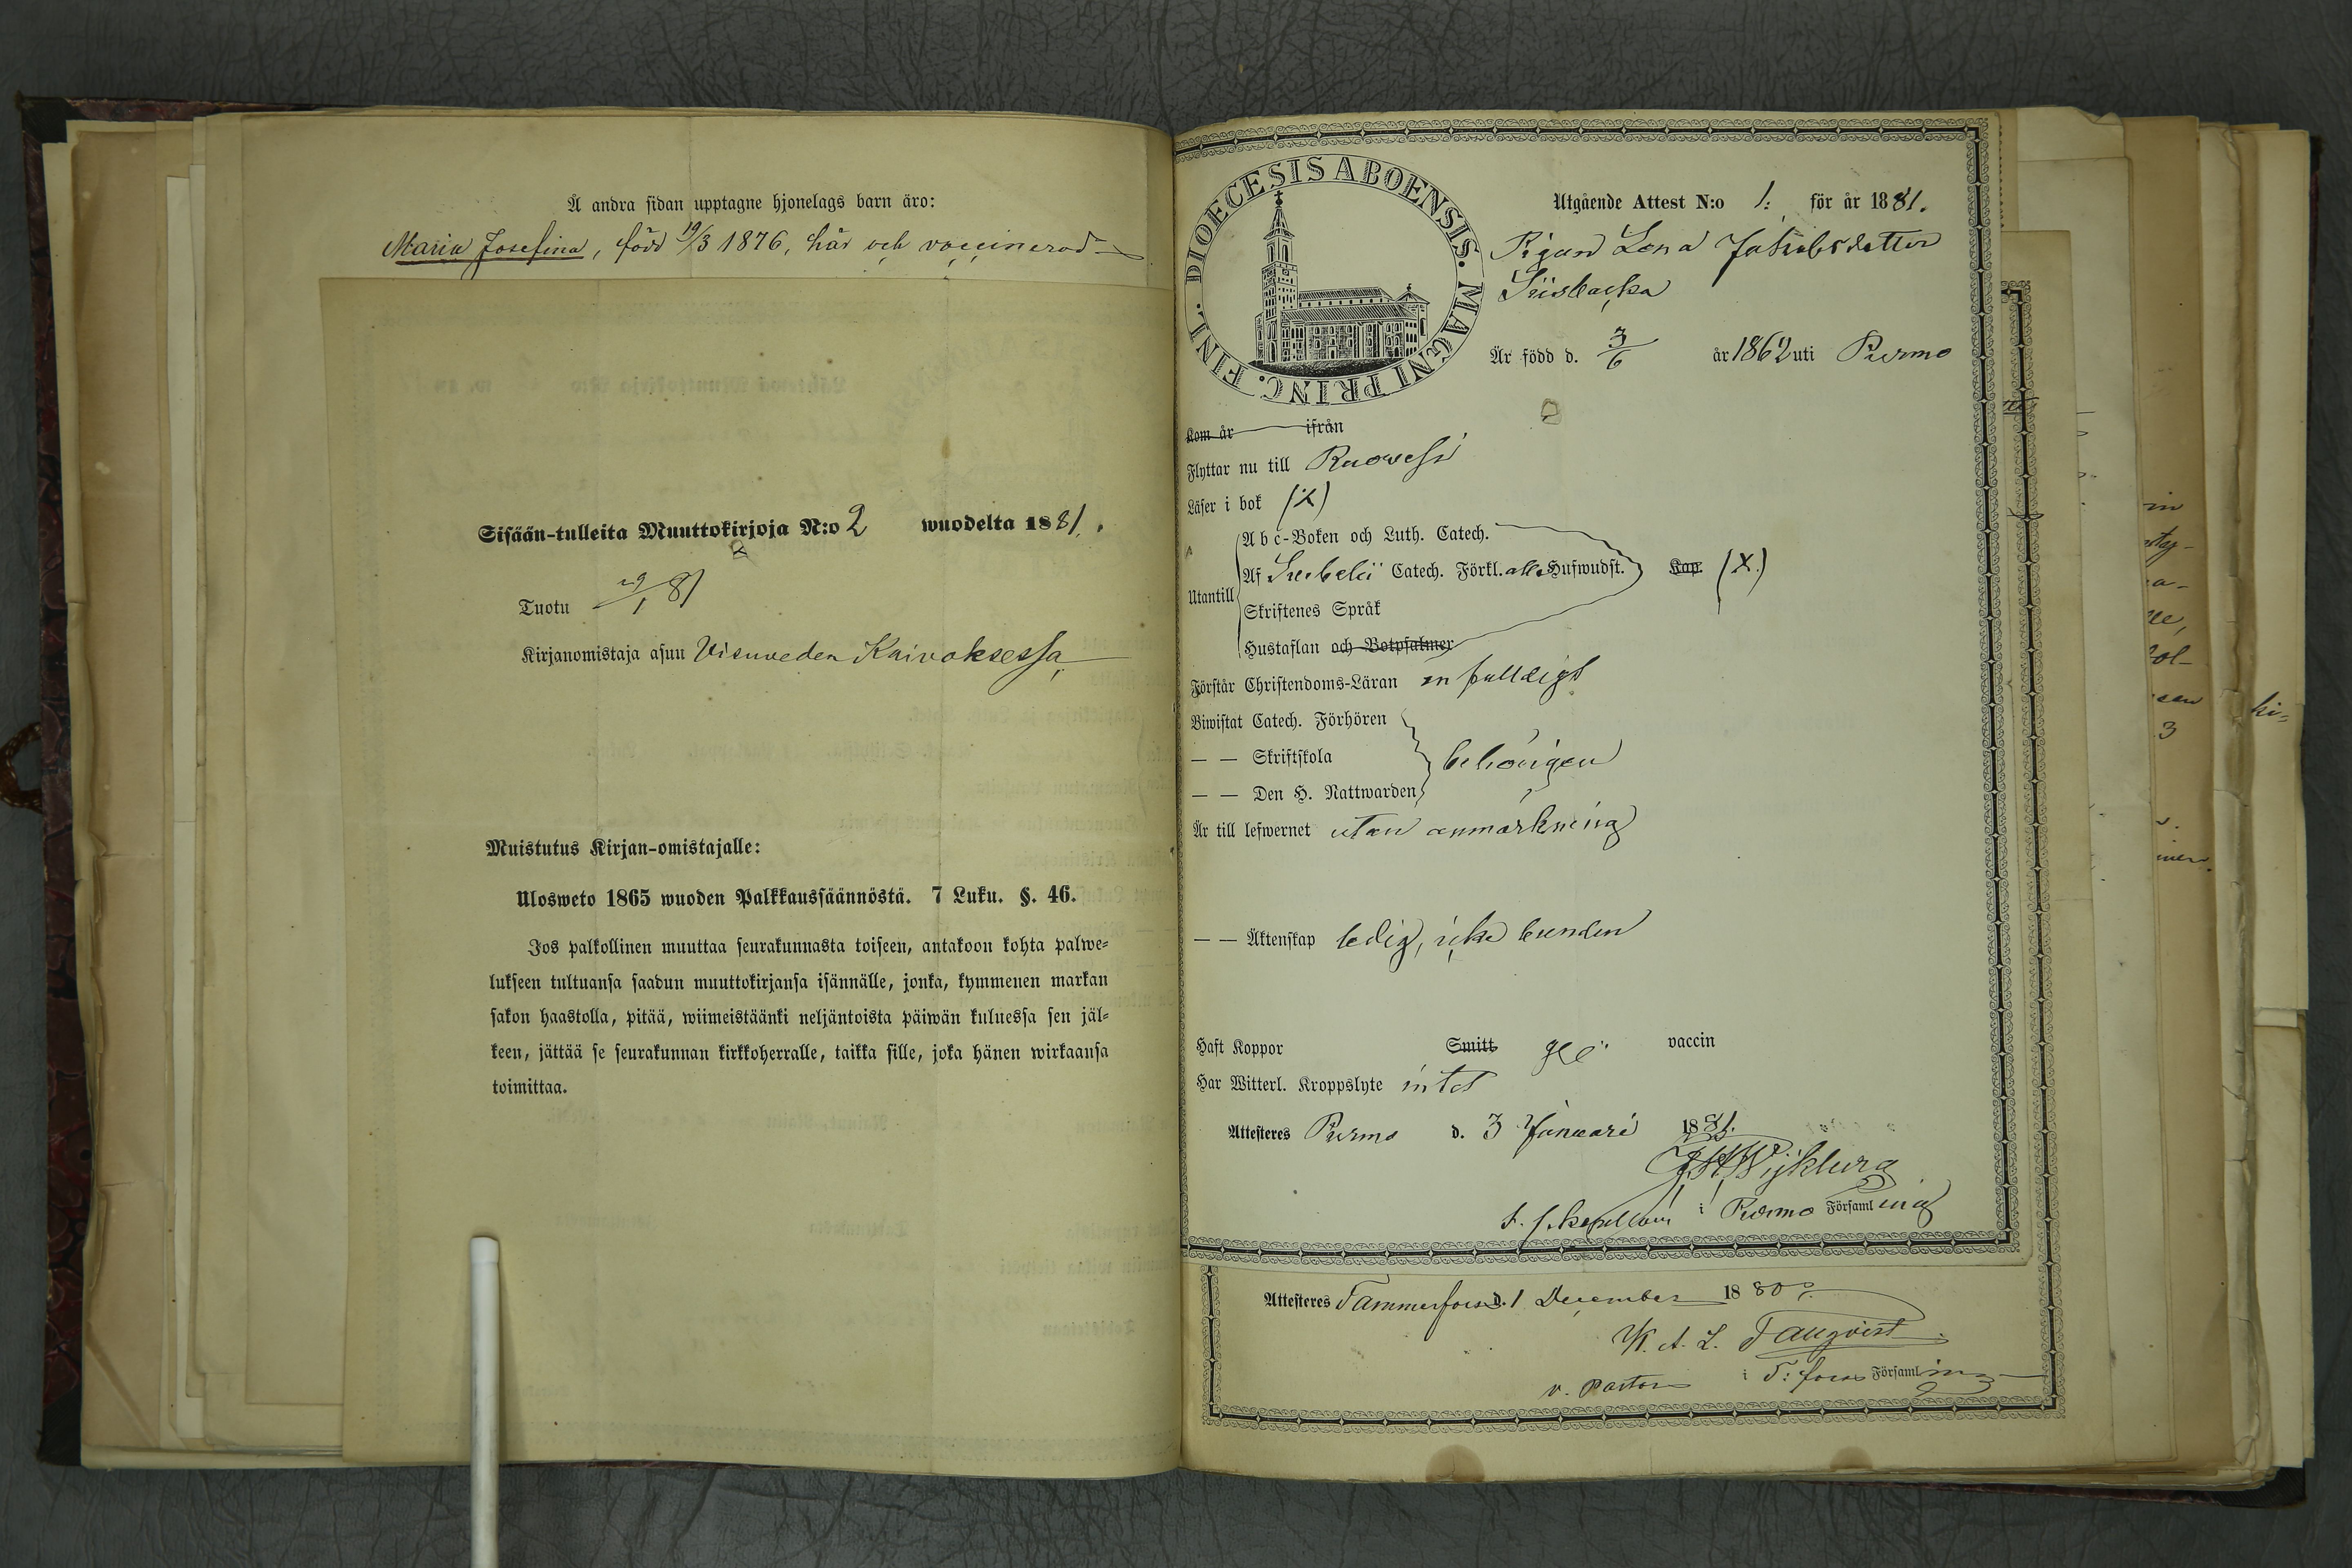 Å andra sidan upptagne hjonelags barn äro:
Maria Josefina, född 19/3 1876, här och vaccinerad
Sisään-tulleita Muuttokirjoja N:o 2 wuodelta 1881.
Tuotu 29/1 81
Kirjanomistaja asuu Visuveden Kaivoksessa
Muistutus Kirjan-omistajalle:
Ulosweto 1865 wuoden Palkkaussäännöstä. 7 Luku. §. 46.
Jos palkollinen muuttaa seurakunnasta toiseen, antakoon kohta palwe-
lukseen tultuansa saadun muuttokirjansa isännälle, jonka, kymmenen markan
sakon haastolla, pitää, wiimeistäänki neljäntoista päiwän kuluessa sen jäl-
keen, jättää se seurakunnan kirkkoherralle, taikka sille, joka hänen wirkaansa
toimittaa.
DIOECESIS ABOENSIS. MAGNI PRINC. FINL.
Utgående Attest N:o 1. för år 1881.
Pigan Lena Jakobsdotter
Sisbacka
Är född d. 3/6 år 1862 uti Purmo
Kom år ifrån
Flyttar nu till Ruovesi
Läser i bok (X)
Utantill
Abc-Boken och Luth. Catech.
Af Svebelii Catech. Förkl. alla Hufwudst. Kap. (X.)
Skriftenes Språk
Hustaflan och Botpsalmer
Förstår Christendoms-Läran enfaldigt
Biwistat Catech. Förhören
— — Skriftskola behörigen
— — Den H. Nattwarden
Är till lefwernet utan anmärkning
— — Äktenskap ledig, icke bunden
Haft Koppor Smitt vaccin
Har Witterl. Kroppslyte intet
Attesteres Purmo d. 3 Januari 1881.
Wijkberg
i Purmo Församling
Attesteres Tammerfors d. 1 December 1880
K. A. L. Tallqvist
v. Pastor i T:fors Församling